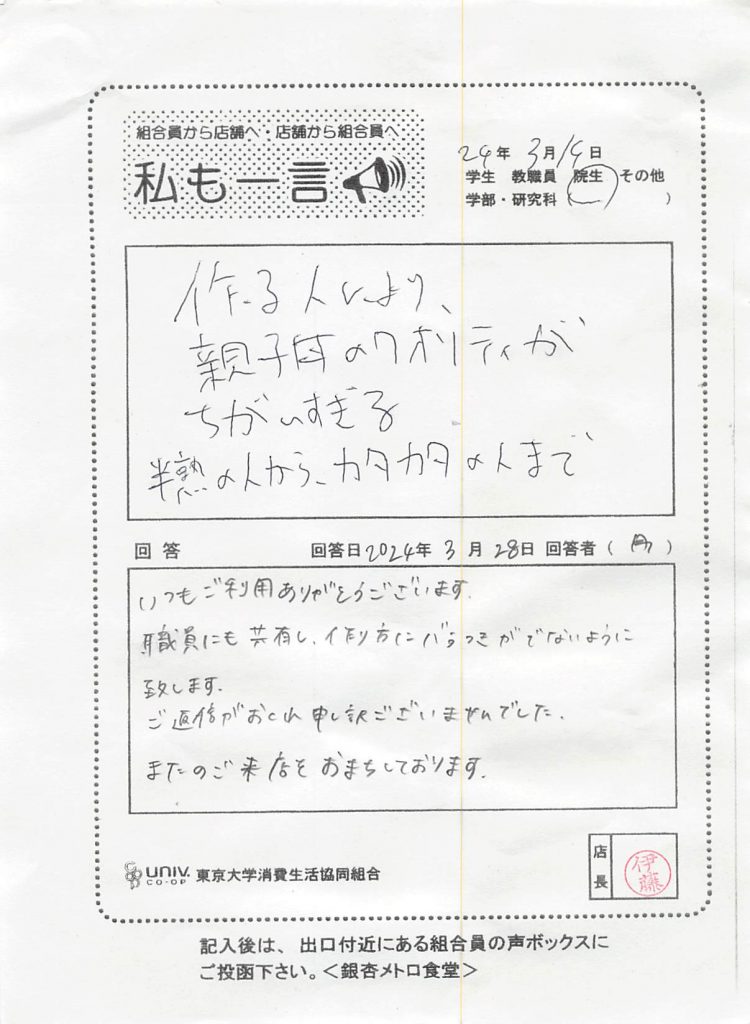 組合員から店舗へ・店舗から組合員へ
私も一言
24年 3月14日
学生 教職員 院生 その他
学部・研究科 ( )
作る人により、
親子丼のクオリティが
ちがいすぎる
半熟の人から、カタカタの人まで
回答 回答日2024年 3月28日 回答者 ( )
いつもご利用ありがとうございます.
職員にも共有し、作り方にバラつきがでないように
致します.
ご返信がおくれ申し訳ございませんでした.
またのご来店をおまちしております.
店長
伊藤
UNIV. CO-OP 東京大学消費生活協同組合
記入後は、出口付近にある組合員の声ボックスに
ご投函下さい。<銀杏メトロ食堂>